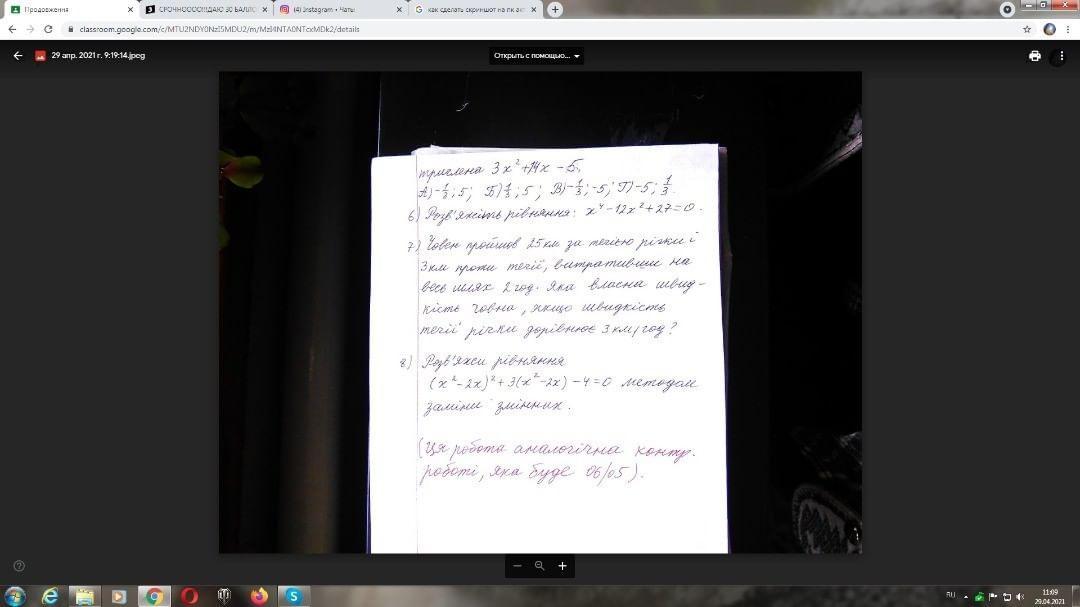 Продовження
СРОЧНОООО!!!ДАЮ 30 БАЛЛО
(4) Instagram • Чаты
как сделать скриншот на пк акт
classroom.google.com/c/MTU2NDY0NzI5MDU2/m/MzI4NTA0NTcxMDk2/details
29 апр. 2021 г. 9:19:14.jpeg
Открыть с помощью...
тричлена 3x² + 14x - 5.
А) -1/2; 5; Б) 1/3; 5; В) -1/3; -5; Г) -5; 1/3.
6) Розв'яжіть рівняння: x⁴ - 12x² + 27 = 0.
7) Човен пройшов 25 км за течією річки і
3 км проти течії, витративши на
весь шлях 2 год. Яка власна швид-
кість човна, якщо швидкість
течії річки дорівнює 3 км/год?
8) Розв'яжи рівняння
(x² - 2x)² + 3(x² - 2x) - 4 = 0 методом
заміни змінних.
(Ця робота аналогічна контр.
роботі, яка буде 06/05).
RU
11:09
29.04.2021